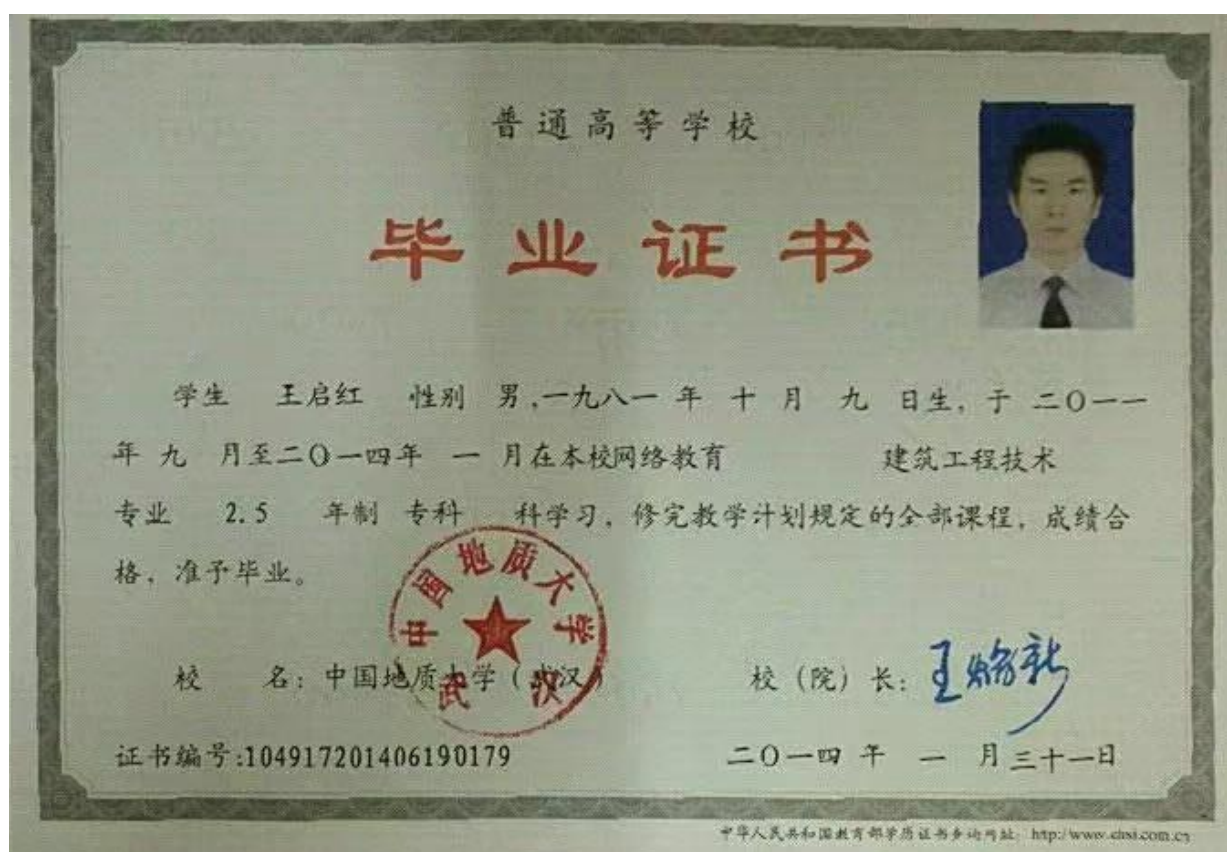 普通高等学校
毕业证书
学生 王启红 性别 男,一九八一 年 十 月 九 日生,于 二〇一一
年 九 月至二〇一四年 一 月在本校网络教育 建筑工程技术
专业 2.5 年制 专科 科学习,修完教学计划规定的全部课程,成绩合
格,准予毕业。
中国地质大学
武汉
校 名:中国地质大学(武汉)
校(院)长:
证书编号:104917201406190179
二〇一四 年 一 月三十一日
中华人民共和国教育部学历证书查询网址: http://www.chsi.com.cn